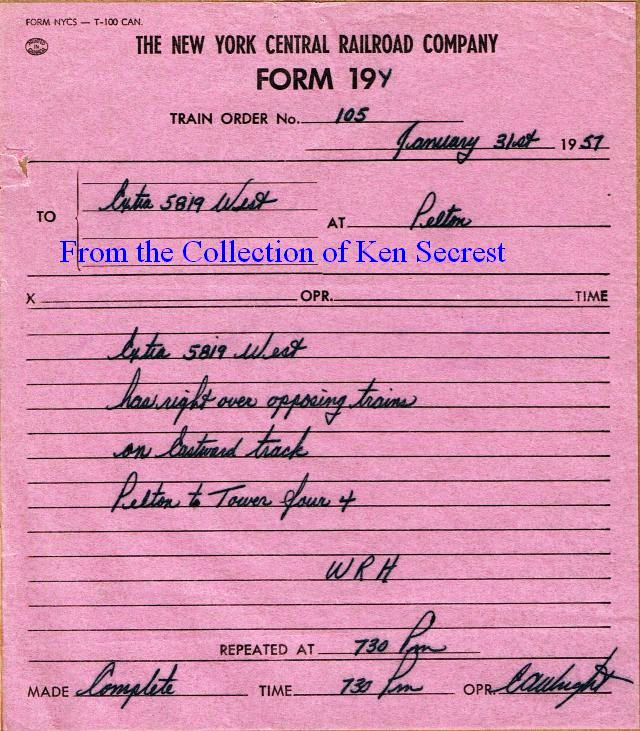 FORM NYCS — T-100 CAN.
THE NEW YORK CENTRAL RAILROAD COMPANY
FORM 19Y
TRAIN ORDER No. 105
January 31st 1957
TO Extra 5819 West AT Pelton
From the Collection of Ken Secrest
X OPR. TIME
Extra 5819 West
has right over opposing trains
on Eastward track
Pelton to Tower four 4
W R H
REPEATED AT 730 Pm
MADE Complete TIME 730 Pm OPR.